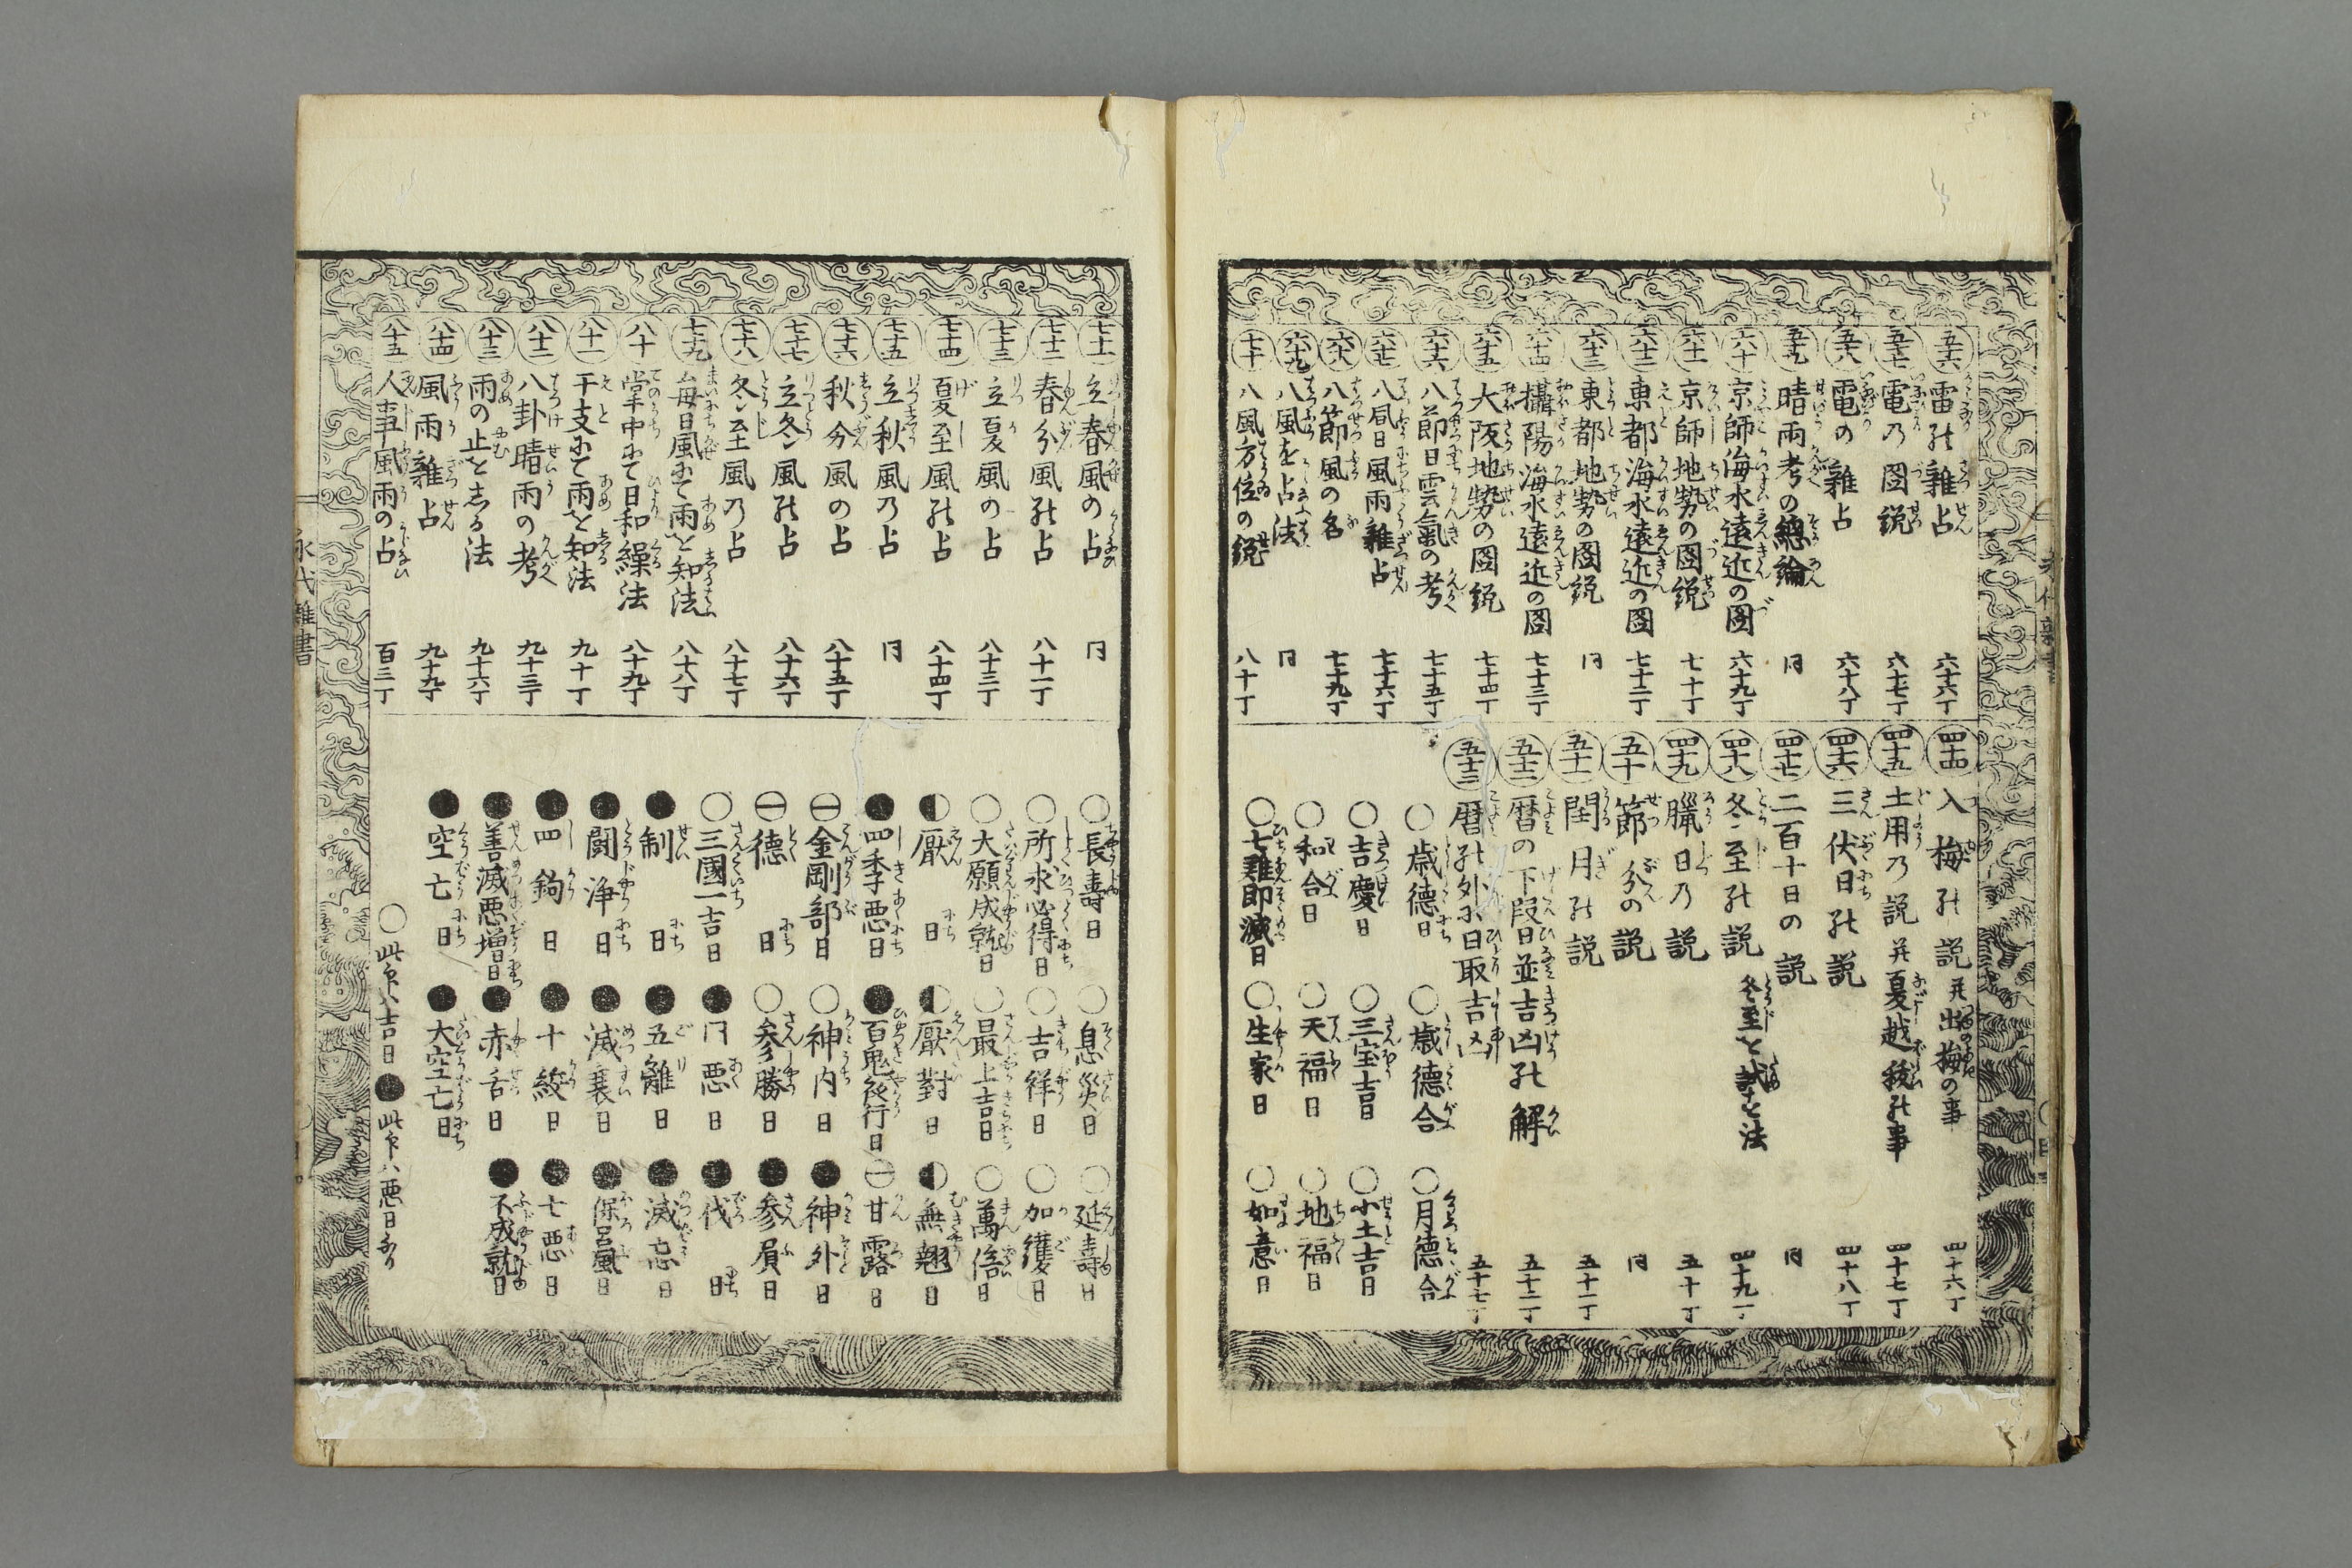 五十六 雷の雜占 六十六丁
五十七 電乃圖説 六十七丁
五十八 電の雜占 六十八丁
五十九 晴雨考の總論 同
六十 京師海水遠近の圖 六十九丁
六十一 京師地勢の圖説 七十丁
六十二 東都海水遠近の圖 七十二丁
六十三 東都地勢の圖説 同
六十四 攝陽海水遠近の圖 七十三丁
六十五 大阪地勢の圖説 七十四丁
六十六 八節日雲氣の考 七十五丁
六十七 八風日風雨雜占 七十六丁
六十八 八節風の名 七十九丁
六十九 八風を占法 同
七十 八風方位の説 八十丁
四十四 入梅の説 并出梅の事 四十六丁
四十五 土用乃説 并夏越祓の事 四十七丁
四十六 三伏日の説 四十八丁
四十七 二百十日の説 同
四十八 冬至の説 冬至を試る法 四十九丁
四十九 臘日乃説 五十丁
五十 節分の説 同
五十一 閏月の説 五十一丁
五十二 暦の下段日並吉凶の解 五十二丁
五十三 暦の外に日取吉凶 五十七丁
○歳德日 ○歳德合 ○月德合
○吉慶日 ○三宝吉日 ○小土吉日
○和合日 ○天福日 ○地福日
○七難即滅日 ○生家日 ○如意日
七十一 立春風の占 同
七十二 春分風の占 八十一丁
七十三 立夏風の占 八十三丁
七十四 夏至風の占 八十四丁
七十五 立秋風乃占 同
七十六 秋分風の占 八十五丁
七十七 立冬風の占 八十六丁
七十八 冬至風乃占 八十七丁
七十九 毎日風にて雨を知法 八十八丁
八十 掌中にて日和繰法 八十九丁
八十一 干支にて雨を知法 九十丁
八十二 八卦晴雨の考 九十三丁
八十三 雨の止をしる法 九十六丁
八十四 風雨雜占 九十九丁
八十五 人事風雨の占 百三丁
○長壽日 ○息災日 ○延壽日
○所求必得日 ○吉祥日 ○加護日
○大願成就日 ○最上吉日 ○萬倍日
◐厭日 ◐厭對日 ◐無翹日
●四季悪日 ●百鬼夜行日 ⊖甘露日
⊖金剛部日 ○神内日 ●神外日
⊖德日 ○参勝日 ●参負日
○三國一吉日 ●同悪日 ●伐日
●制日 ●五離日 ●滅亡日
●闘浄日 ●滅衰日 ●保呂風日
●四鉤日 ●十絞日 ●七悪日
●善滅悪増日 ●赤舌日 ●不成就日
●空亡日 ●大空亡日
○此印ハ吉日 ●此印ハ悪日なり
永代雜書